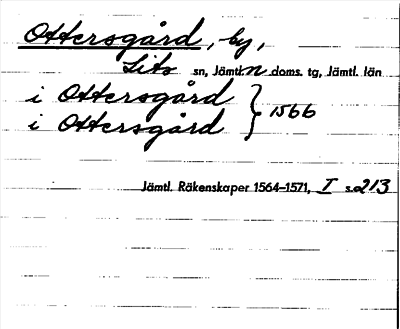 Ottersgård, by,
Lits sn, Jämtl. n doms. tg, Jämtl. län
i Ottersgård } 1566
i Ottersgård
Jämtl. Räkenskaper 1564–1571, I s. 213